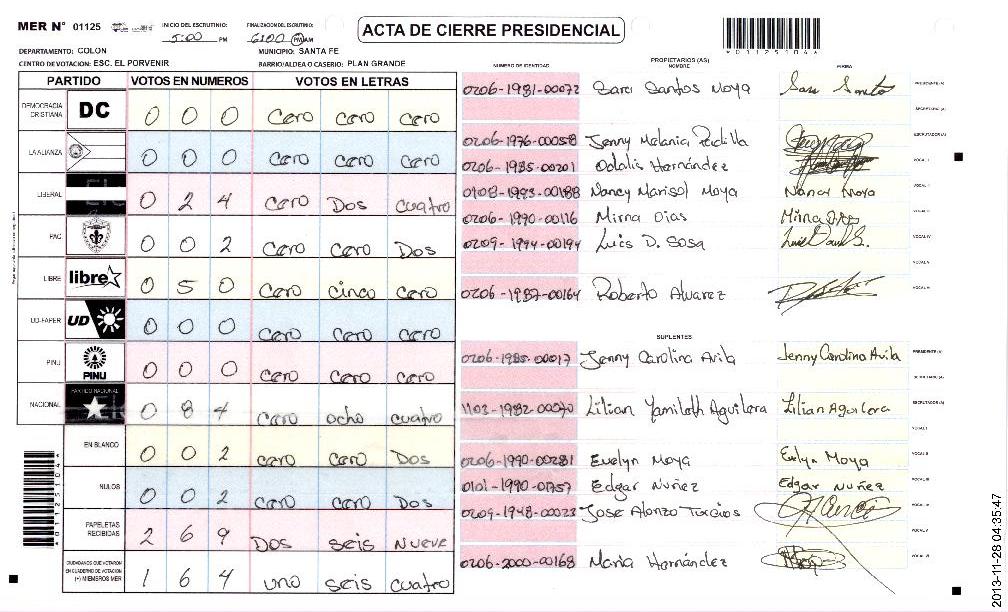 MER N° 01125
INICIO DEL ESCRUTINIO: 5:00 PM
FINALIZACION DEL ESCRUTINIO: 6:00 PM/AM
ACTA DE CIERRE PRESIDENCIAL
*01125104*
DEPARTAMENTO: COLON
MUNICIPIO: SANTA FE
CENTRO DE VOTACION: ESC. EL PORVENIR
BARRIO/ALDEA O CASERIO: PLAN GRANDE
PARTIDO VOTOS EN NUMEROS VOTOS EN LETRAS
DEMOCRACIA CRISTIANA DC 0 0 0 Cero Cero Cero
LA ALIANZA 0 0 0 Cero Cero Cero
LIBERAL 0 2 4 Cero Dos cuatro
PAC 0 0 2 Cero Cero Dos
LIBRE libre 0 5 0 Cero cinco Cero
UD-FAPER UD 0 0 0 Cero Cero Cero
PINU PINU 0 0 0 Cero Cero Cero
NACIONAL PARTIDO NACIONAL 0 8 4 Cero ocho cuatro
EN BLANCO 0 0 2 Cero Cero Dos
NULOS 0 0 2 Cero Cero Dos
PAPELETAS RECIBIDAS 2 6 9 Dos seis Nueve
CIUDADANOS QUE VOTARON EN CUADERNO DE VOTACION (+) MIEMBROS MER 1 6 4 uno seis cuatro
NUMERO DE IDENTIDAD PROPIETARIOS (AS) NOMBRE FIRMA
0206-1981-00072 Sara Santos Moya Sara Santos PRESIDENTE (A)
SECRETARIO (A)
0206-1976-00058 Jenny Melania Padilla ESCRUTADOR (A)
0206-1985-00201 Odalis Hernández VOCAL I
0108-1993-00188 Nancy Marisol Moya Nancy Moya VOCAL II
0206-1990-00116 Mirna Dias Mirna Dias VOCAL III
0209-1994-00194 Luis D. Sosa VOCAL IV
VOCAL V
0206-1987-00164 Roberto Alvarez VOCAL VI
SUPLENTES
0206-1985-00017 Jenny Carolina Avila Jenny Carolina Avila PRESIDENTE (A)
SECRETARIO (A)
1103-1982-00070 Lilian Yamileth Aguilera Lilian Aguilera ESCRUTADOR (A)
VOCAL I
0206-1990-00281 Evelyn Moya Evelyn Moya VOCAL II
0101-1990-01757 Edgar Nuñez Edgar Nuñez VOCAL III
0209-1948-00023 Jose Alonzo Turcios VOCAL IV
VOCAL V
0206-2000-00168 Maria Hernández VOCAL VI
2013-11-28 04:35:47